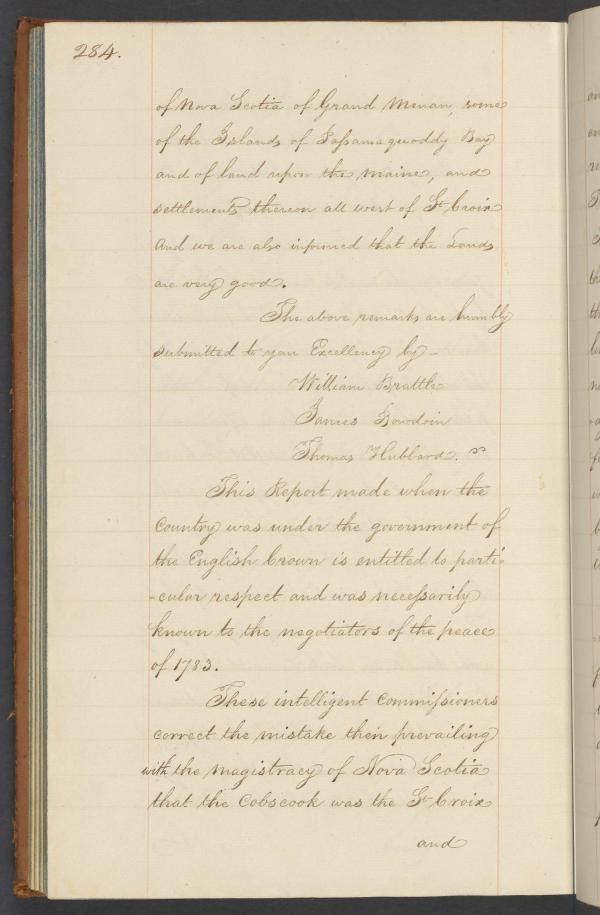 284.
of Nova Scotia of Grand Menan, some
of the Islands of Passamaquoddy Bay
and of land upon the maine, and
settlements thereon all west of St Croix
and we are also informed that the Lands
are very good.
The above remarks are humbly
submitted to your Excellency by -
William Brattle
James Bowdoin
Thomas Hubbard.
This Report made when the
country was under the government of
the English Crown is entitled to parti-
-cular respect and was necessarily
known to the negotiators of the peace
of 1783.
These intelligent Commissioners
correct the mistake then prevailing
with the magistracy of Nova Scotia
that the Cobscook was the St Croix
and